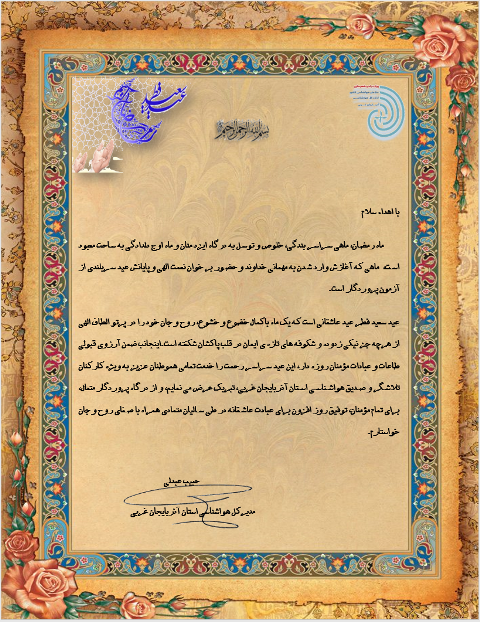 عید سعید فطر
بسم الله الرحمن الرحیم
با اهداء سلام
ماه رمضان، ماهی سراسر بندگی، خلوص و توسل به درگاه ایزد منان و ماه اوج دلدادگی به ساحت معبود
است. ماهی که آغازش وارد شدن به مهمانی خداوند و حضور بر خوان نعمت الهی و پایانش عید سربلندی از
آزمون پروردگار است.
عید سعید فطر، عید عاشقانی است که یک ماه، باکمال خضوع و خشوع، روح و جان خود را در پرتو الطاف الهی
از هر چه جز نیکی زدوده و شکوفه های تازه ی ایمان در قلب پاکشان شکفته است.اینجانب ضمن آرزوی قبولی
طاعات و عبادات مؤمنان روزه دار، این عید سراسر رحمت را خدمت تمامی هموطنان عزیز به ویژه کارکنان
تلاشگر و صدیق هواشناسی استان آذربایجان غربی، تبریک عرض می نمایم و از درگاه پروردگار متعال،
برای تمام مؤمنان، توفیق روز افزون برای عبادت عاشقانه در طی سالیان متمادی همراه با صفای روح و جان
خواستارم.
حبیب عبدلی
مدیر کل هواشناسی استان آذربایجان غربی